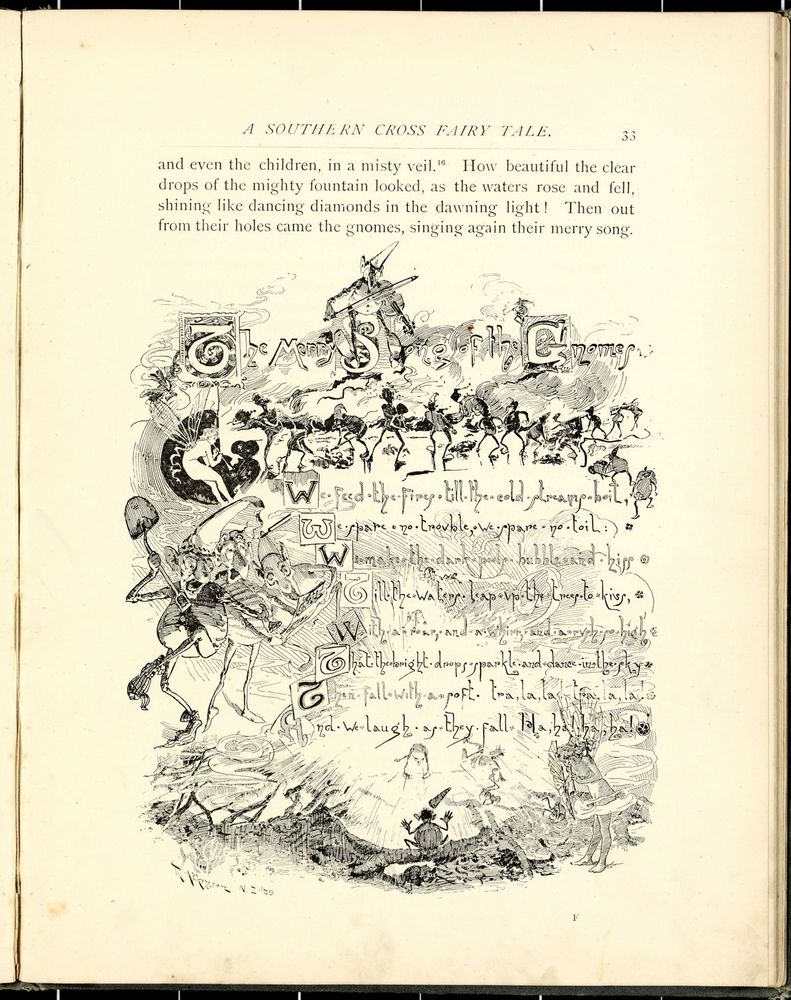 A SOUTHERN CROSS FAIRY TALE. 33
and even the children, in a misty veil.¹⁶ How beautiful the clear
drops of the mighty fountain looked, as the waters rose and fell,
shining like dancing diamonds in the dawning light! Then out
from their holes came the gnomes, singing again their merry song.
The Merry Song of the Gnomes
We feed the fires till the cold streams boil,
We spare no trouble, we spare no toil:
We make the dark pools bubble and hiss
Till the waters leap up the trees to kiss,
With a roar, and a whirr, and a rush so high
That the bright drops sparkle and dance in the sky
Then fall with a soft tra, la, la, tra, la, la!
And we laugh as they fall Ha, ha! ha, ha!
N.Z.
F